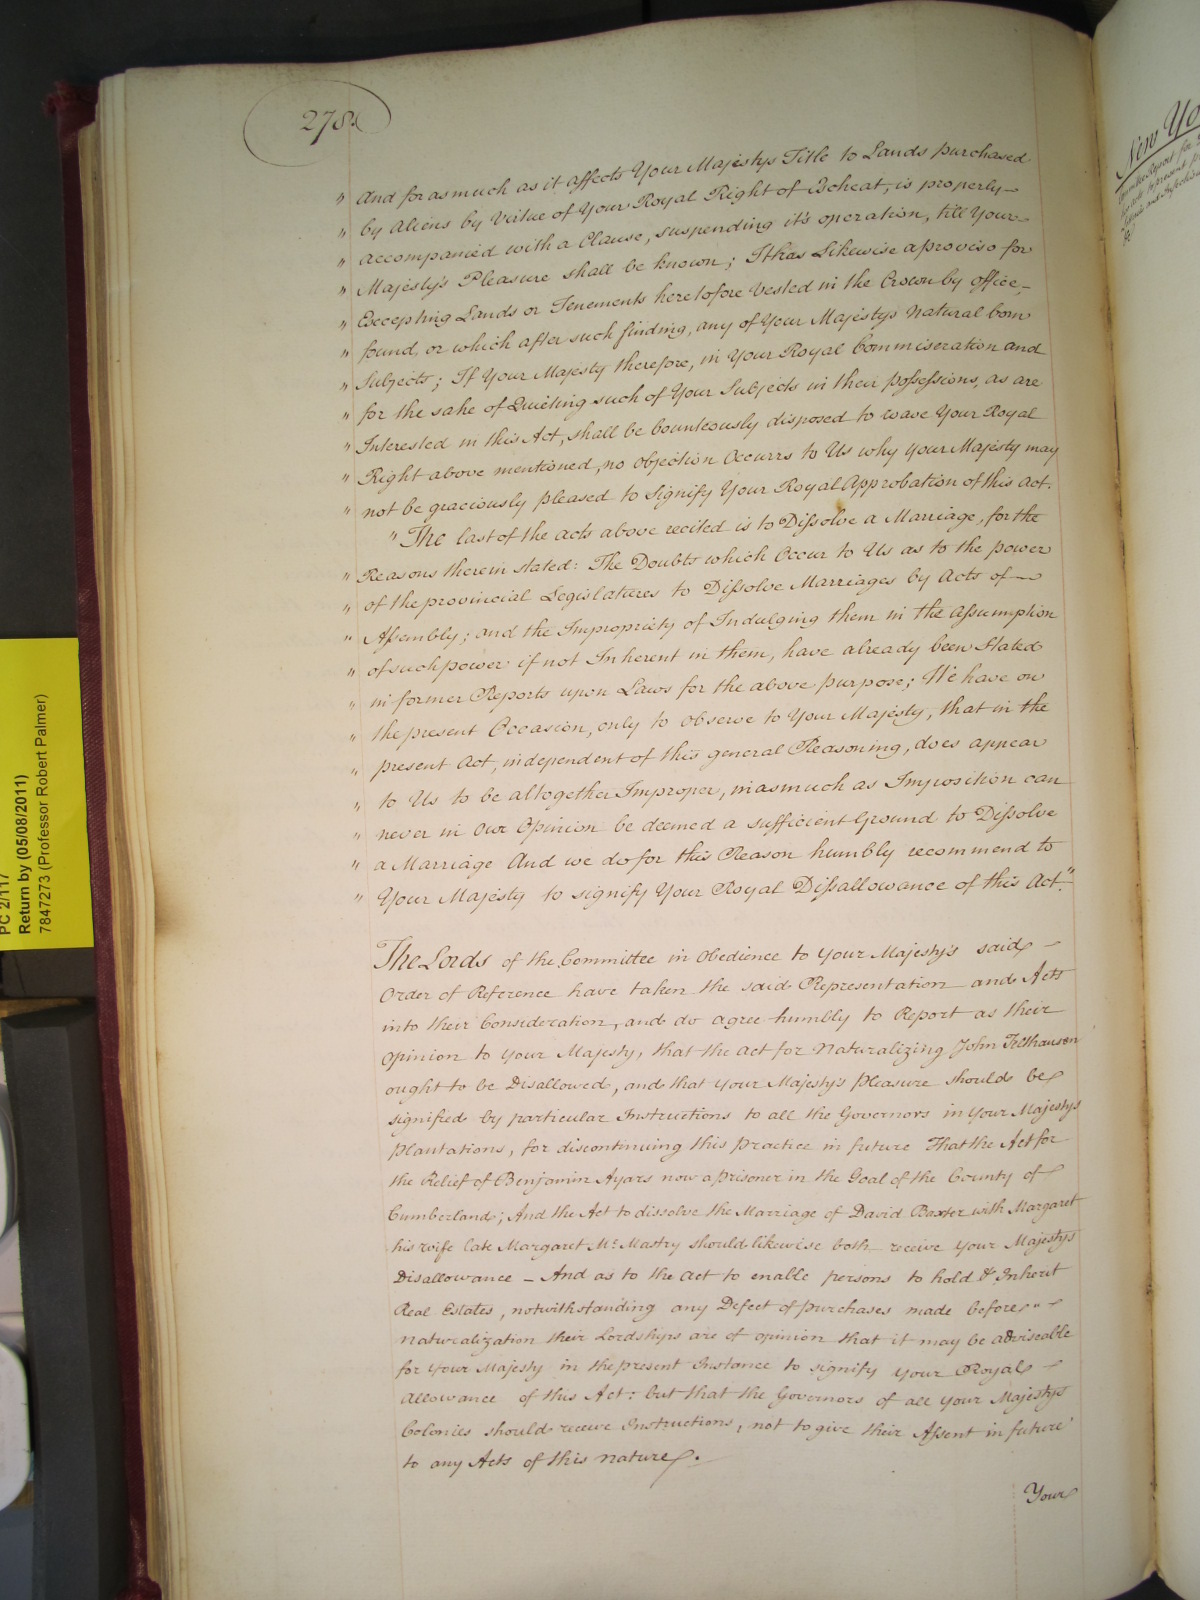 278.
" And forasmuch as it affects Your Majestys Title to Lands purchased
" by Aliens by Virtue of Your Royal Right of Escheat, is properly
" accompanied with a Clause, suspending it's operation, till Your
" Majesty's Pleasure shall be known; It has Likewise a proviso for
" Excepting Lands or Tenements heretofore Vested in the Crown by office
" found, or which after such finding, any of Your Majestys Natural born
" Subjects; If Your Majesty therefore, in Your Royal Commiseration and
" for the sake of Quieting such of Your Subjects in their possessions, as are
" Interested in this Act, shall be bounteously disposed to wave Your Royal
" Right above mentioned, no objection Occurrs to Us why your Majesty may
" not be graciously pleased to Signify Your Royal Approbation of this Act.
" The last of the acts above recited is to Dissolve a Marriage, for the
" Reasons therein stated: The Doubts which Occur to Us as to the power
" of the provincial Legislatures to Dissolve Marriages by Acts of
" Assembly; and the Impropriety of Indulging them in the Assumption
" of such power if not Inherent in them, have already been Stated
" in former Reports upon Laws for the above purpose; We have on
" the present Occasion, only to observe to Your Majesty, that in the
" present Act, independent of this general Reasoning, does appear
" to Us to be altogether Improper, inasmuch as Imposition can
" never in Our Opinion be deemed a sufficient Ground to Dissolve
" a Marriage And we do for this Reason humbly recommend to
" Your Majesty to signify Your Royal Dissallowance of this Act."
The Lords of the Committee in Obedience to Your Majesty's said
Order of Reference have taken the said Representation and Acts
into their Consideration, and do agree humbly to Report as their
opinion to your Majesty, that the Act for Naturalizing John Felthausen
ought to be Disallowed, and that your Majesty's Pleasure should be
signified by particular Instructions to all the Governors in your Majestys
Plantations, for discontinuing this Practice in future That the Act for
the Relief of Benjamin Ayars now a prisoner in the Goal of the County of
Cumberland; And the Act to dissolve the Marriage of David Baxter with Margaret
his wife late Margaret Mc. Mastry should likewise both receive your Majestys
Disallowance - And as to the Act to enable persons to hold & Inherit
Real Estates, notwithstanding any Defect of purchases made before
naturalization their Lordships are of opinion that it may be adviseable
for your Majesty in the present Instance to signify your Royal
Allowance of this Act: but that the Governors of all your Majestys
Colonies should receive Instructions, not to give their Assent in future
to any Acts of this nature.
Your
New Yo
PC 2/117
Return by (05/08/2011)
7847273 (Professor Robert Palmer)